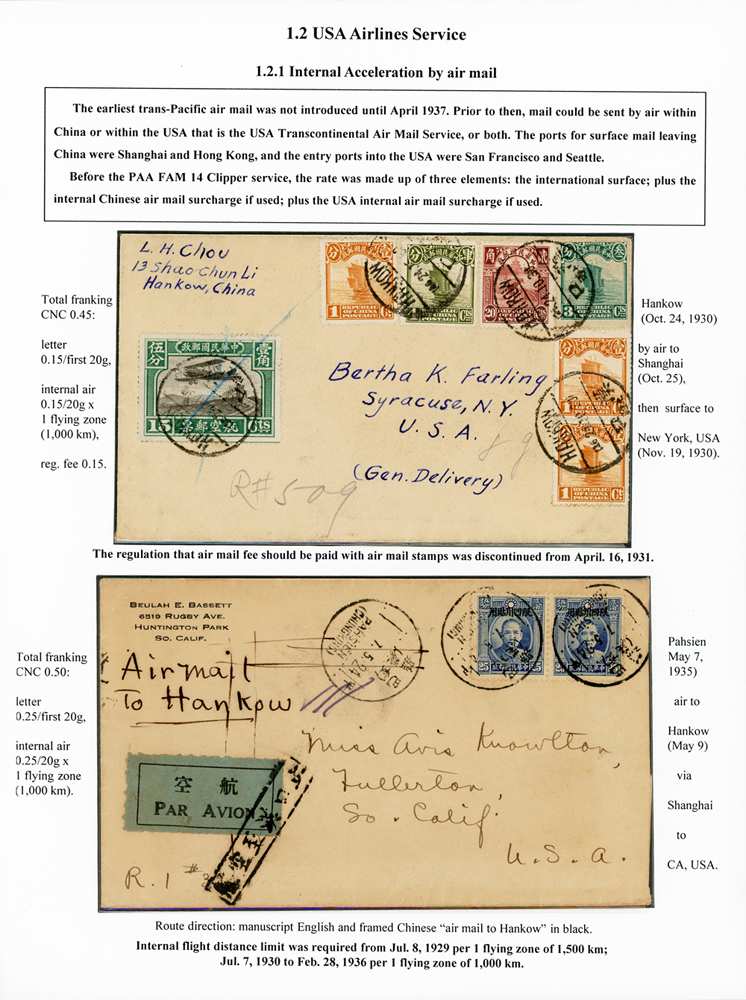 1.2 USA Airlines Service
1.2.1 Internal Acceleration by air mail
The earliest trans-Pacific air mail was not introduced until April 1937. Prior to then, mail could be sent by air within
China or within the USA that is the USA Transcontinental Air Mail Service, or both. The ports for surface mail leaving
China were Shanghai and Hong Kong, and the entry ports into the USA were San Francisco and Seattle.
Before the PAA FAM 14 Clipper service, the rate was made up of three elements: the international surface; plus the
internal Chinese air mail surcharge if used; plus the USA internal air mail surcharge if used.
Total franking
CNC 0.45:
letter
0.15/first 20g,
internal air
0.15/20g x
1 flying zone
(1,000 km),
reg. fee 0.15.
L. H. Chou
13 Shao Chun Li
Hankow, China
1 REPUBLIC OF CHINA POSTAGE Ct
4
HANKOW
20
HANKOW
3 REPUBLIC OF CHINA POSTAGE Cts
伍分 政郵國民華中 壹角
15 Cts
Bertha K. Farling
Syracuse, N.Y.
U. S. A.
(Gen. Delivery)
R# 509
HANKOW
1 REPUBLIC OF CHINA POSTAGE Ct
Hankow
(Oct. 24, 1930)
by air to
Shanghai
(Oct. 25),
then surface to
New York, USA
(Nov. 19, 1930).
The regulation that air mail fee should be paid with air mail stamps was discontinued from April. 16, 1931.
Total franking
CNC 0.50:
letter
0.25/first 20g,
internal air
0.25/20g x
1 flying zone
(1,000 km).
BEULAH E. BASSETT
6519 RUGBY AVE.
HUNTINGTON PARK
SO. CALIF.
Airmail
To Hankow
PAHSIEN
7.5.24
25
25
Miss Avis Knowlton,
Fullerton,
So. Calif.
U. S. A.
空 航
PAR AVION
R. 1 #
Pahsien
May 7,
1935)
air to
Hankow
(May 9)
via
Shanghai
to
CA, USA.
Route direction: manuscript English and framed Chinese “air mail to Hankow” in black.
Internal flight distance limit was required from Jul. 8, 1929 per 1 flying zone of 1,500 km;
Jul. 7, 1930 to Feb. 28, 1936 per 1 flying zone of 1,000 km.